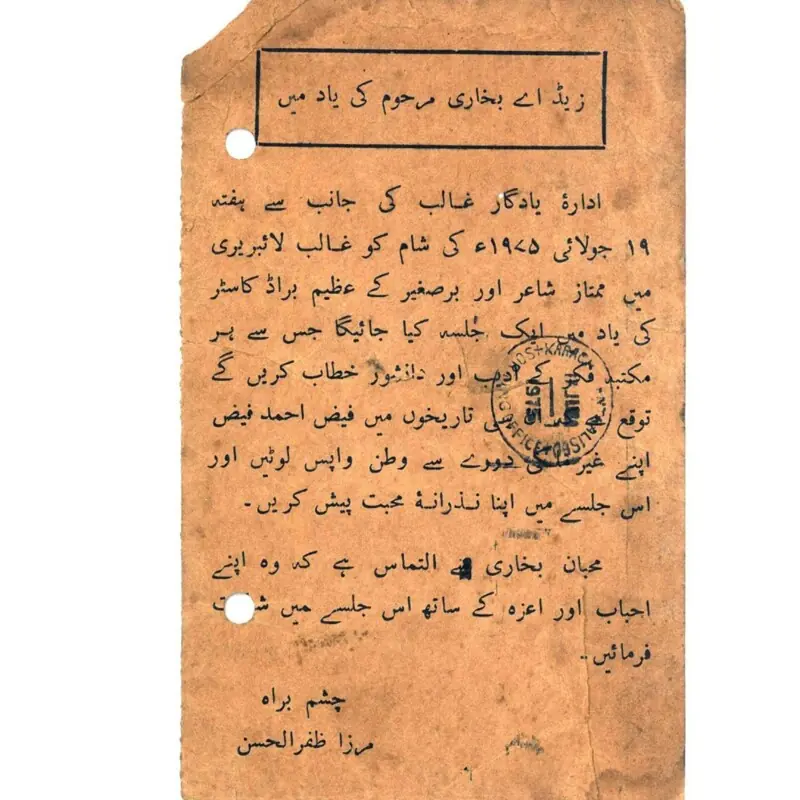 زیڈ اے بخاری مرحوم کی یاد میں
ادارۂ یادگار غالب کی جانب سے ہفتہ
۱۹ جولائی ۱۹۷۵ء کی شام کو غالب لائبریری
میں ممتاز شاعر اور برصغیر کے عظیم براڈ کاسٹر
کی یاد میں ایک جلسہ کیا جائیگا جس سے ہر
مکتبہ فکر کے ادیب اور دانشور خطاب کریں گے
توقع ہے تاریخوں میں فیض احمد فیض
اپنے غیر ملکی دورے سے وطن واپس لوٹیں اور
اس جلسے میں اپنا نذرانۂ محبت پیش کریں۔
محبان بخاری سے التماس ہے کہ وہ اپنے
احباب اور اعزہ کے ساتھ اس جلسے میں
فرمائیں۔
چشم براہ
مرزا ظفرالحسن
KARACHI
1975
OFFICE